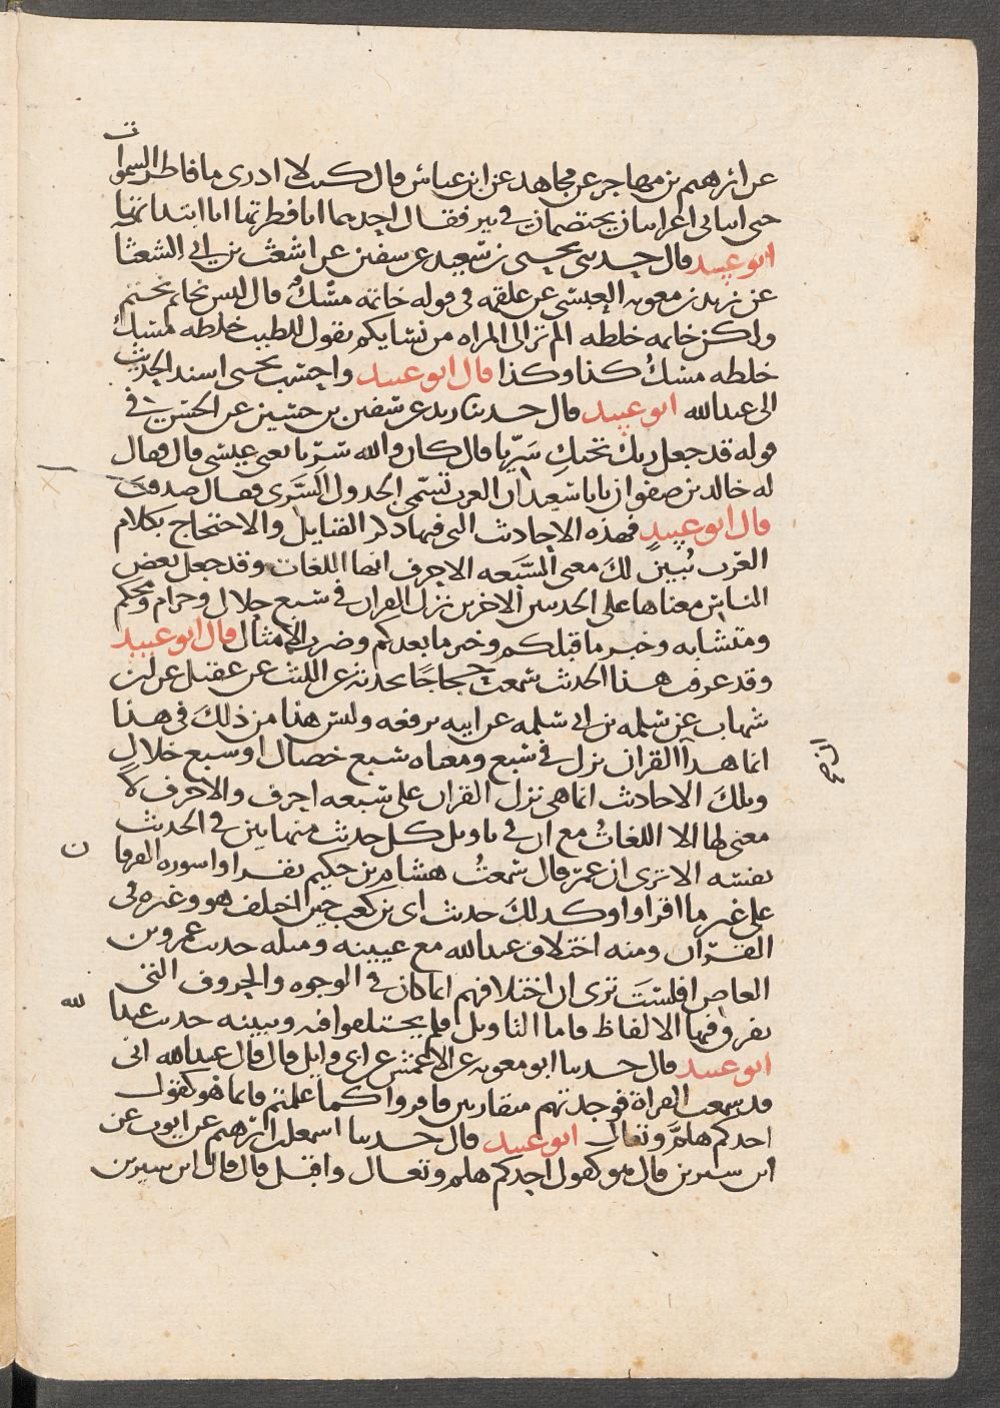 عن ابرهيم بن مهاجر عن مجاهد عن ابن عباس قال كنت لا ادرى ما فاطر السموات
حتى اتانى اعرابيان يختصمان في بير فقال احدهما انا فطرتها انا ابتداتها
ابو عبيد قال حدثنى يحيى بن سعيد عن سفين عن اشعث بن ابي الشعثا
عن زيد بن معويه العبسى عن علقمه في قوله خاتمه مسك قال ليس بخاتم يختم
ولكن خاتمه خلطه الم تر الى المراه من نسايكم تقول للطيب خلطه مسك
خلطه مسك كذا وكذا قال ابو عبيد واحسب يحيى اسند الحديث
الى عبدالله ابو عبيد قال حدثنا يزيد عن سفين بن حسين عن الحسن في
قوله قد جعل ربك تحتك سريا قال كان والله سريا يعنى عيسى قال فقال
له خالد بن صفوان يابا سعيد ان العرب تسمى الجدول السرى فقال صدقت
قال ابو عبيد فهذه الاحاديث التى فيها ذكر القبايل والاحتجاج بكلام
العرب تبين لك معنى السبعه الاحرف انها اللغات وقد جعل بعض
الناس معناها على الحديث الاخر بن نزل القران في سبع حلال وحرام ومحكم
ومتشابه وخبر ما قبلكم وخبر ما بعدكم وضرب الامثال قال ابو عبيد
وقد عرف هذا الحديث سمعت حجاجا يحدثه عن الليث عن عقيل عن ابن
شهاب عن سلمه بن ابي سلمه عن ابيه يرفعه وليس هذا من ذلك في هذا
انما هذا القران نزل في سبع ومعناه سبع خصال او سبع خلال
وتلك الاحاديث انما هى نزل القران على سبعه احرف والاحرف لا
معنى لها الا اللغات مع ان في تاويل كل حديث منها بين في الحديث
نفسه الا ترى ان عمر قال سمعت هشام بن حكيم يقرا سوره الفرقان
على غير ما اقراوا وكذلك حديث ابى بن كعب حين اختلف هو وغيره في
القران ومنه اختلاف عبدالله مع غيره ومثله حديث عمرو بن
العاص افلست ترى ان اختلافهم انما كان في الوجوه والحروف التى
تفرق فيها الالفاظ فاما التاويل فلم يختلفوا فيه ويبينه حديث عبدالله
ابو عبيد قال حدثنا ابو معويه عن الاعمش عن ابى وايل قال قال عبدالله انى
قد سمعت القراة فوجدتهم متقاربين فاقروا كما علمتم فانما هو كقول
احدكم هلم وتعال ابو عبيد قال حدثنا اسمعيل بن ابرهيم عن ايوب عن
ابن سيرين قال هو كقول احدكم هلم وتعال واقبل قال قال ابن سيرين